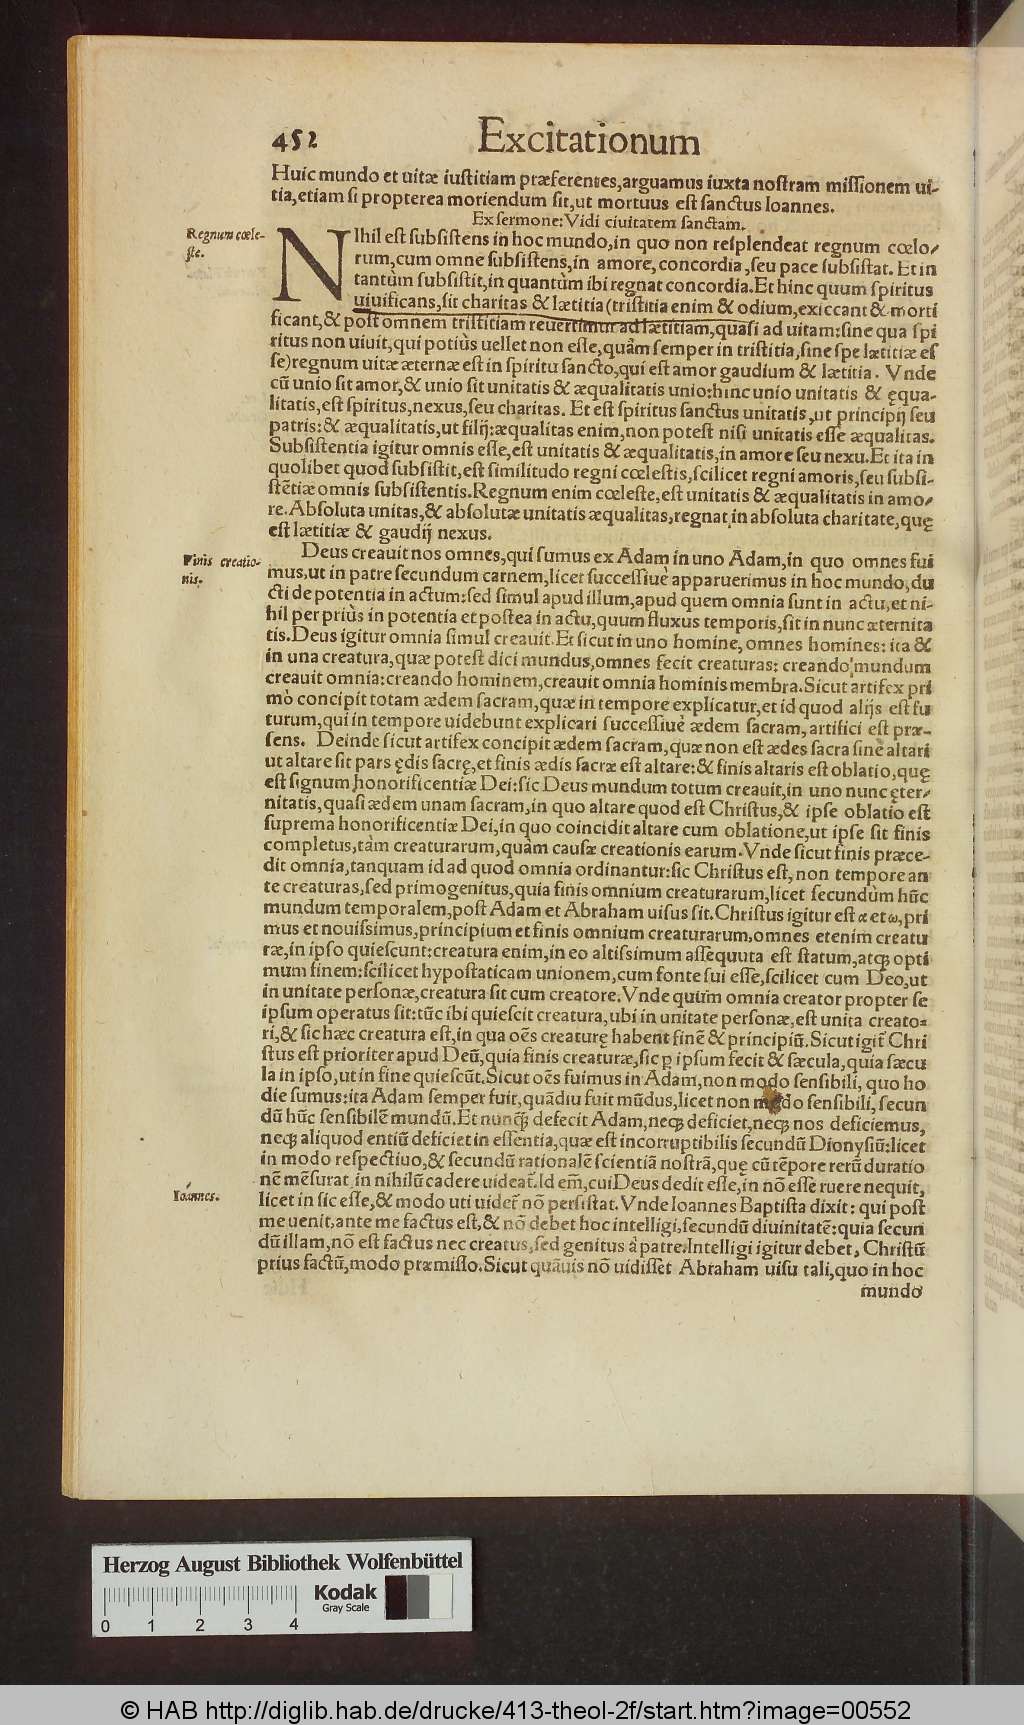 452 Excitationum
Huic mundo et uitæ iustitiam præferentes,arguamus iuxta nostram missionem ui-
tia,etiam si propterea moriendum sit,ut mortuus est sanctus Ioannes.
Ex sermone: Vidi ciuitatem sanctam.
Regnum cœle-
ste.
NIhil est subsistens in hoc mundo,in quo non resplendeat regnum cœlo-
rum,cum omne subsistens,in amore,concordia,seu pace subsistat. Et in
tantùm subsistit,in quantùm ibi regnat concordia.Et hinc quum spiritus
uiuificans,sit charitas & lætitia(tristitia enim & odium,exiccant & morti
ficant,& post omnem tristitiam reuertimur ad lætitiam,quasi ad uitam:sine qua spi
ritus non uiuit,qui potiùs uellet non esse,quàm semper in tristitia,sine spe lætitiæ es
se)regnum uitæ æternæ est in spiritu sancto,qui est amor gaudium & lætitia. Vnde
cū unio sit amor,& unio sit unitatis & æqualitatis unio:hinc unio unitatis & ęqua-
litatis,est spiritus,nexus,seu charitas. Et est spiritus sanctus unitatis,ut principij seu
patris:& æqualitatis,ut filij:æqualitas enim,non potest nisi unitatis esse æqualitas.
Subsistentia igitur omnis esse,est unitatis & æqualitatis,in amore seu nexu.Et ita in
quolibet quod subsistit,est similitudo regni cœlestis,scilicet regni amoris,seu subsi-
stētiæ omnis subsistentis.Regnum enim cœleste,est unitatis & æqualitatis in amo-
re.Absoluta unitas,& absolutæ unitatis æqualitas,regnat in absoluta charitate,quę
est lætitiæ & gaudij nexus.
Finis creatio-
nis.
Deus creauit nos omnes,qui sumus ex Adam in uno Adam,in quo omnes fui
mus,ut in patre secundum carnem,licet successiuè apparuerimus in hoc mundo,du
cti de potentia in actum:sed simul apud illum,apud quem omnia sunt in actu,et ni-
hil per priùs in potentia et postea in actu,quum fluxus temporis,sit in nunc æternita
tis.Deus igitur omnia simul creauit.Et sicut in uno homine,omnes homines: ita &
in una creatura,quæ potest dici mundus,omnes fecit creaturas: creando mundum
creauit omnia:creando hominem,creauit omnia hominis membra.Sicut artifex pri
mò concipit totam ædem sacram,quæ in tempore explicatur,et id quod alijs est fu
turum,qui in tempore uidebunt explicari successiuè ædem sacram, artifici est præ-
sens. Deinde sicut artifex concipit ædem sacram,quæ non est ædes sacra sine altari
ut altare sit pars ędis sacrę,et finis ædis sacræ est altare:& finis altaris est oblatio,quę
est signum honorificentiæ Dei:sic Deus mundum totum creauit,in uno nunc ęter-
nitatis,quasi ædem unam sacram,in quo altare quod est Christus,& ipse oblatio est
suprema honorificentiæ Dei,in quo coincidit altare cum oblatione,ut ipse sit finis
completus,tàm creaturarum,quàm causæ creationis earum.Vnde sicut finis præce-
dit omnia,tanquam id ad quod omnia ordinantur:sic Christus est,non tempore an
te creaturas,sed primogenitus,quia finis omnium creaturarum,licet secundùm hūc
mundum temporalem,post Adam et Abraham uisus sit.Christus igitur est α et ω,pri
mus et nouissimus,principium et finis omnium creaturarum,omnes etenim creatu
ræ,in ipso quiescunt:creatura enim,in eo altissimum assequuta est statum,atq; opti
mum finem:scilicet hypostaticam unionem,cum fonte sui esse,scilicet cum Deo,ut
in unitate personæ,creatura sit cum creatore.Vnde quum omnia creator propter se
ipsum operatus sit:tūc ibi quiescit creatura,ubi in unitate personæ,est unita creato-
ri,& sic hæc creatura est,in qua oēs creaturę habent finē & principiū.Sicut igit̄ Chri
stus est prioriter apud Deū,quia finis creaturæ,sic ꝑ ipsum fecit & sæcula,quia sæcu
la in ipso,ut in fine quiescūt.Sicut oēs fuimus in Adam,non modo sensibili, quo ho
die sumus:ita Adam semper fuit,quādiu fuit mūdus,licet non modo sensibili,secun
dū hūc sensibilē mundū.Et nunq̄ defecit Adam,neq; deficiet,neq; nos deficiemus,
neq; aliquod entiū deficiet in essentia,quæ est incorruptibilis secundū Dionysiū:licet
in modo respectiuo,& secundū rationalē scientiā nostrā,quę cū tēpore rerū duratio
nē mēsurat,in nihilū cadere uideat̄.Id em̄,cui Deus dedit esse,in nō esse ruere nequit,
Ioánnes.
licet in sic esse,& modo uti uidet̄ nō persistat.Vnde Ioannes Baptista dixit: qui post
me uenit,ante me factus est,& nō debet hoc intelligi,secundū diuinitatē:quia secun
dū illam,nō est factus nec creatus,sed genitus à patre.Intelligi igitur debet, Christū
prius factū,modo præmisso.Sicut quāuis nō uidisset Abraham uisu tali,quo in hoc
mundo
Herzog August Bibliothek Wolfenbüttel
Kodak
Gray Scale
0 1 2 3 4
© HAB http://diglib.hab.de/drucke/413-theol-2f/start.htm?image=00552